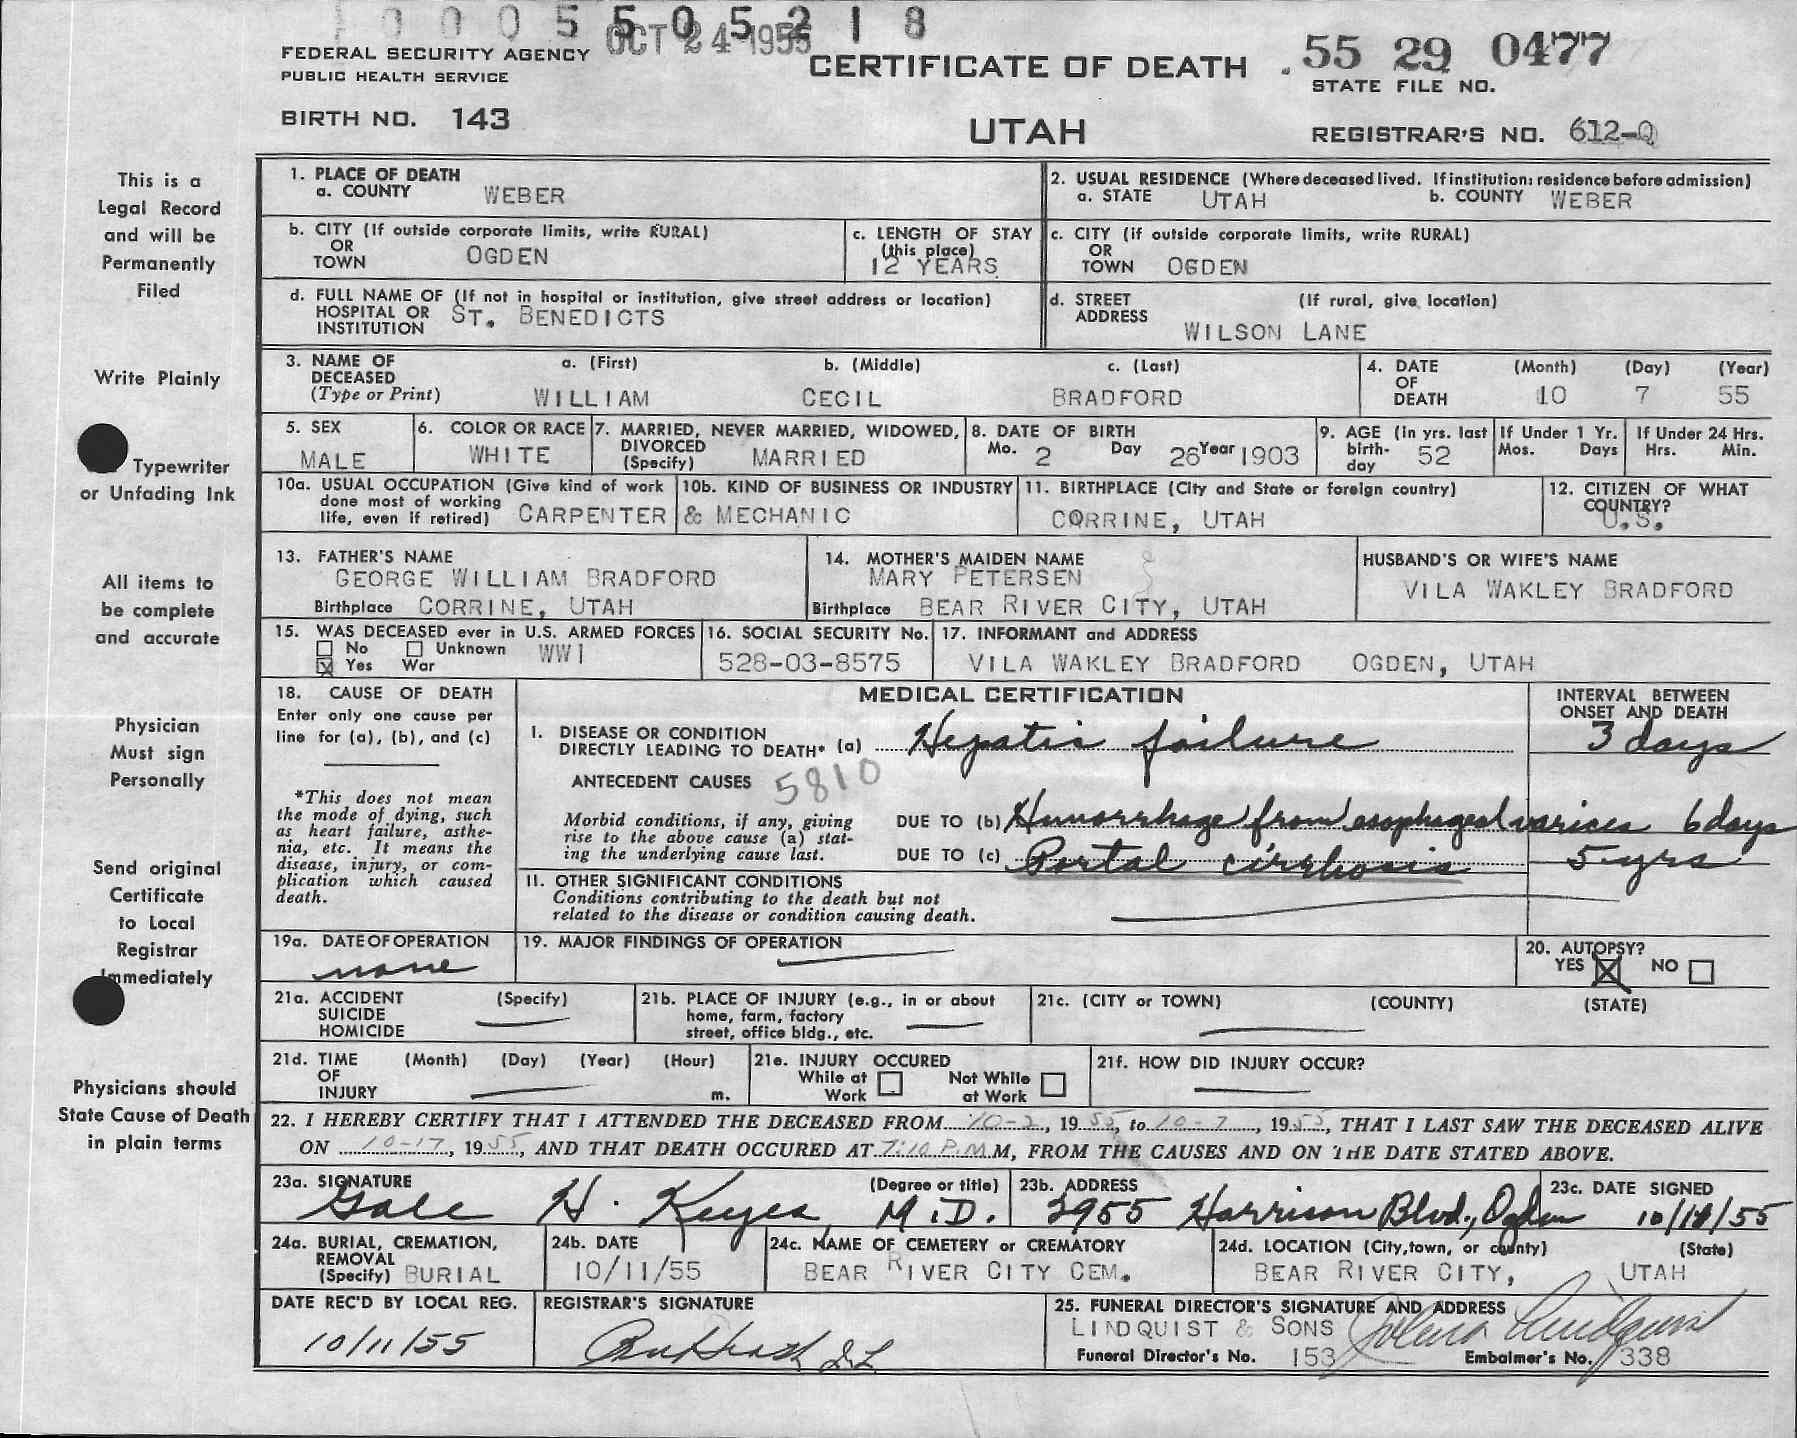 1 0 0 0 5 5 0 5 2 1 8
OCT 24 1955
FEDERAL SECURITY AGENCY
PUBLIC HEALTH SERVICE
CERTIFICATE OF DEATH
55 29 0477
STATE FILE NO.
BIRTH NO. 143
UTAH
REGISTRAR'S NO. 612-Q
This is a
Legal Record
and will be
Permanently
Filed
Write Plainly
Typewriter
or Unfading Ink
All items to
be complete
and accurate
Physician
Must sign
Personally
Send original
Certificate
to Local
Registrar
Immediately
Physicians should
State Cause of Death
in plain terms
1. PLACE OF DEATH
a. COUNTY WEBER
2. USUAL RESIDENCE (Where deceased lived. If institution: residence before admission)
a. STATE UTAH b. COUNTY WEBER
b. CITY (If outside corporate limits, write RURAL)
OR
TOWN OGDEN
c. LENGTH OF STAY
(this place)
12 YEARS
c. CITY (if outside corporate limits, write RURAL)
OR
TOWN OGDEN
d. FULL NAME OF (If not in hospital or institution, give street address or location)
HOSPITAL OR
INSTITUTION ST. BENEDICTS
d. STREET (If rural, give location)
ADDRESS
WILSON LANE
3. NAME OF a. (First) b. (Middle) c. (Last)
DECEASED
(Type or Print) WILLIAM CECIL BRADFORD
4. DATE (Month) (Day) (Year)
OF
DEATH 10 7 55
5. SEX
MALE
6. COLOR OR RACE
WHITE
7. MARRIED, NEVER MARRIED, WIDOWED,
DIVORCED
(Specify) MARRIED
8. DATE OF BIRTH
Mo. 2 Day 26 Year 1903
9. AGE (in yrs. last
birth-
day 52
If Under 1 Yr.
Mos. Days
If Under 24 Hrs.
Hrs. Min.
10a. USUAL OCCUPATION (Give kind of work
done most of working
life, even if retired) CARPENTER
10b. KIND OF BUSINESS OR INDUSTRY
& MECHANIC
11. BIRTHPLACE (City and State or foreign country)
CORRINE, UTAH
12. CITIZEN OF WHAT
COUNTRY?
U.S.
13. FATHER'S NAME
GEORGE WILLIAM BRADFORD
Birthplace CORRINE, UTAH
14. MOTHER'S MAIDEN NAME
MARY PETERSEN
Birthplace BEAR RIVER CITY, UTAH
HUSBAND'S OR WIFE'S NAME
VILA WAKLEY BRADFORD
15. WAS DECEASED ever in U.S. ARMED FORCES
No Unknown WW1
X Yes War
16. SOCIAL SECURITY No.
528-03-8575
17. INFORMANT and ADDRESS
VILA WAKLEY BRADFORD OGDEN, UTAH
18. CAUSE OF DEATH
Enter only one cause per
line for (a), (b), and (c)
*This does not mean
the mode of dying, such
as heart failure, asthe-
nia, etc. It means the
disease, injury, or com-
plication which caused
death.
MEDICAL CERTIFICATION
INTERVAL BETWEEN
ONSET AND DEATH
I. DISEASE OR CONDITION
DIRECTLY LEADING TO DEATH* (a) Hepatic failure 3 days
ANTECEDENT CAUSES 5810
Morbid conditions, if any, giving
rise to the above cause (a) stat-
ing the underlying cause last.
DUE TO (b) Hemorrhage from esophageal varices 6 days
DUE TO (c) Portal cirrhosis 5 yrs
II. OTHER SIGNIFICANT CONDITIONS
Conditions contributing to the death but not
related to the disease or condition causing death.
19a. DATE OF OPERATION
none
19. MAJOR FINDINGS OF OPERATION
20. AUTOPSY?
YES X NO
21a. ACCIDENT (Specify)
SUICIDE
HOMICIDE
21b. PLACE OF INJURY (e.g., in or about
home, farm, factory
street, office bldg., etc.
21c. (CITY or TOWN) (COUNTY) (STATE)
21d. TIME (Month) (Day) (Year) (Hour)
OF
INJURY m.
21e. INJURY OCCURED
While at Not While
Work at Work
21f. HOW DID INJURY OCCUR?
22. I HEREBY CERTIFY THAT I ATTENDED THE DECEASED FROM 10-2, 1955, to 10-7, 1955, THAT I LAST SAW THE DECEASED ALIVE
ON 10-17, 1955, AND THAT DEATH OCCURED AT 7:10 P.M M, FROM THE CAUSES AND ON THE DATE STATED ABOVE.
23a. SIGNATURE (Degree or title)
Gale H. Keyes, M.D.
23b. ADDRESS
3955 Harrison Blvd., Ogden
23c. DATE SIGNED
10/10/55
24a. BURIAL, CREMATION,
REMOVAL
(Specify) BURIAL
24b. DATE
10/11/55
24c. NAME OF CEMETERY or CREMATORY
BEAR RIVER CITY CEM.
24d. LOCATION (City, town, or county) (State)
BEAR RIVER CITY, UTAH
DATE REC'D BY LOCAL REG.
10/11/55
REGISTRAR'S SIGNATURE
25. FUNERAL DIRECTOR'S SIGNATURE AND ADDRESS
LINDQUIST & SONS
Funeral Director's No. 153 Embalmer's No. 338